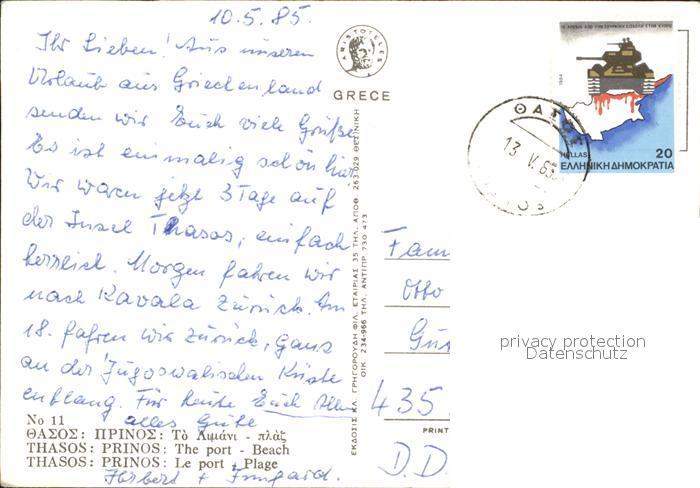 10.5.85.
Ihr Lieben! Aus unserem
Urlaub aus Griechenland
senden wir Euch viele Grüße
Es ist einmalig schön hier
Wir waren jetzt 3 Tage auf
der Insel Thasos, einfach
herrlich. Morgen fahren wir
nach Kavala zurück. Am
18. fahren wir zurück, ganz
an der Jugoswalischen Küste
entlang. Für heute Euch Allen
alles Gute
Herbert + Irmgard.
No 11
ΘΑΣΟΣ: ΠΡΙΝΟΣ: Τὸ Λιμάνι - πλὰζ
THASOS: PRINOS: The port - Beach
THASOS: PRINOS: Le port - Plage
ARISTOTELES
GREECE
ΕΚΔΟΣΙΣ ΚΛ. ΓΡΗΓΟΡΟΥΔΗ ΦΙΛ. ΕΤΑΙΡΙΑΣ 35 ΤΗΛ. ΑΠΟΘ. 263.029 ΘΕΣ/ΝΙΚΗ
ΟΙΚ. 234-966 ΤΗΛ. ΑΝΤΙΠΡ. 730 473
1984
HELLAS 20
ΕΛΛΗΝΙΚΗ ΔΗΜΟΚΡΑΤΙΑ
ΘΑΣΟΣ
13 V. 85
Fam
Otto
Gü
435
PRINT
D.D.
privacy protection
Datenschutz